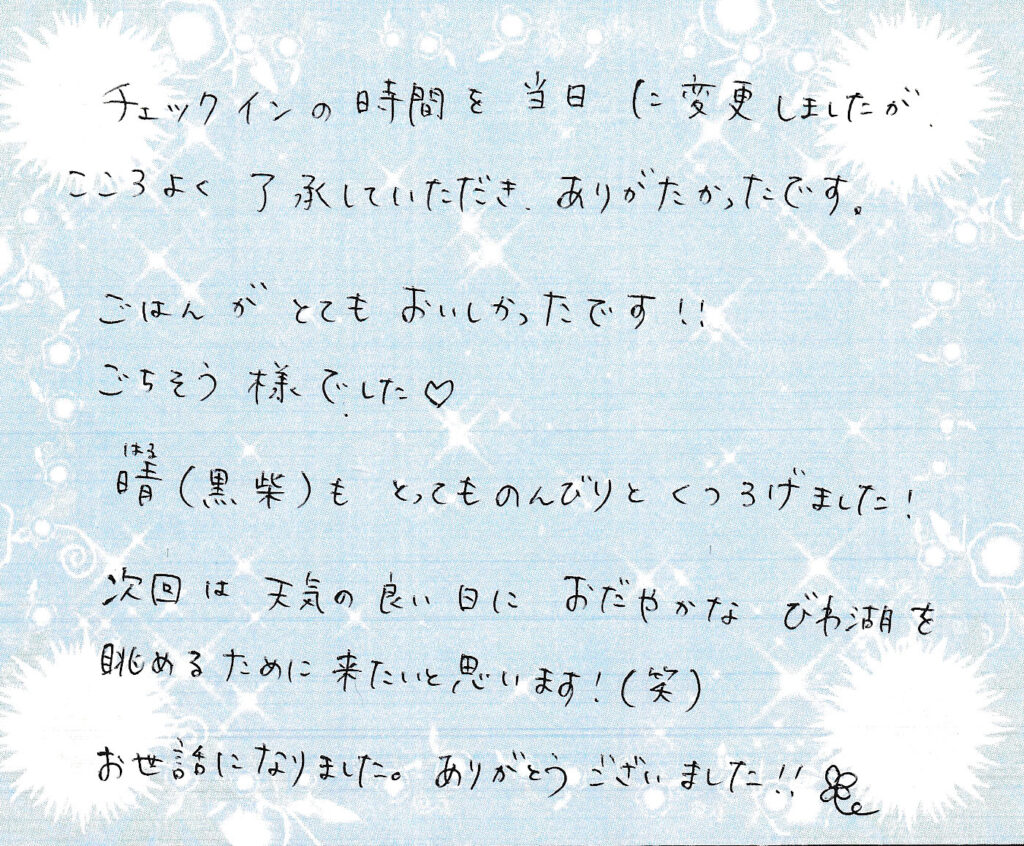 チェックインの時間を当日に変更しましたが、
こころよく了承していただき、ありがたかったです。
ごはんがとてもおいしかったです!!
ごちそう様でした♡
はる
晴(黒柴)も とってものんびりとくつろげました!
次回は天気の良い日におだやかなびわ湖を
眺めるために来たいと思います!(笑)
お世話になりました。ありがとうございました!!